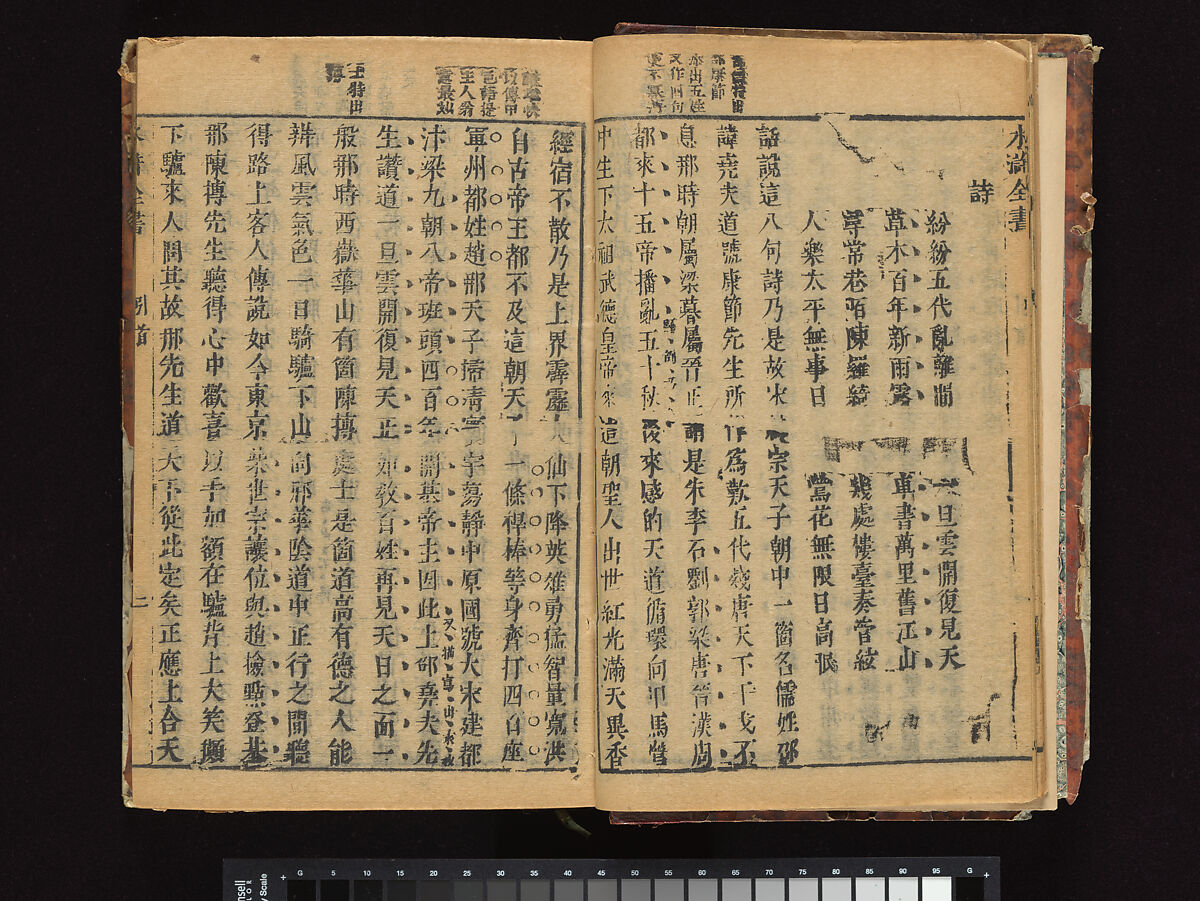 水滸全書
詩
紛紛五代亂離間 一旦雲開復見天
草木百年新雨露 車書萬里舊江山
尋常巷陌陳羅綺 幾處樓臺奏管絃
人樂太平無事日 鶯花無限日高眠
話說這八句詩乃是故宋 宗天子朝中一箇名儒姓邵
諱堯夫道號康節先生所作為歎五代殘唐天下干戈不
息那時朝屬梁暮屬晉正謂是朱李石劉郭梁唐晉漢周
都來十五帝播亂五十秋後來感的天道循環向甲馬營
中生下太祖武德皇帝來這朝聖人出世紅光滿天異香
經宿不散乃是上界霹靂大仙下降英雄勇猛智量寬洪
自古帝王都不及這朝天子一條桿棒等身齊打四百座
軍州都姓趙那天子掃清寰宇蕩靜中原國號大宋建都
汴梁九朝八帝班頭四百年開基帝主因此上邵堯夫先
生讚道一旦雲開復見天正如教百姓再見天日之面一
般那時西嶽華山有箇陳摶處士是箇道高有德之人能
辨風雲氣色一日騎驢下山向那華陰道中正行之間聽
得路上客人傳說如今東京柴世宗讓位與趙檢點登基
那陳摶先生聽得心中歡喜以手加額在驢背上大笑顛
下驢來人問其故那先生道天下從此定矣正應上合天
引首
二